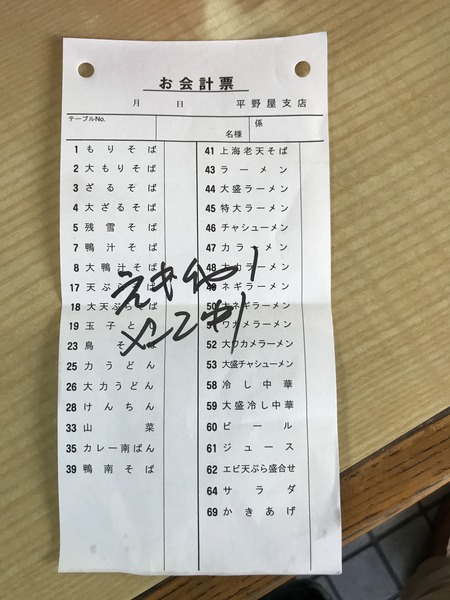 お会計票
月 日 平野屋支店
テーブルNo. 名様 係
1 もりそば
2 大もりそば
3 ざるそば
4 大ざるそば
5 残雪そば
7 鴨汁そば
8 大鴨汁そば
17 天ぷらそば
18 大天ぷらそば
19 玉子と
23 鳥そ
25 力うどん
26 大力うどん
28 けんちん
33 山菜
35 カレー南ばん
39 鴨南そば
41 上海老天そば
43 ラーメン
44 大盛ラーメン
45 特大ラーメン
46 チャシューメン
47 力ラーメン
48 大力ラーメン
49 ネギラーメン
50 大ネギラーメン
51 ワカメラーメン
52 大ワカメラーメン
53 大盛チャシューメン
58 冷し中華
59 大盛冷し中華
60 ビール
61 ジュース
62 エビ天ぷら盛合せ
64 サラダ
69 かきあげ